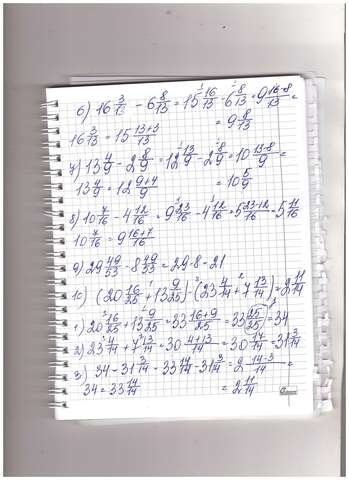 6) 16 3/13 - 6 8/13 = 15 16/13 - 6 8/13 = 9 16-8/13 =
16 3/13 = 15 13+3/13 = 9 8/13
7) 13 4/9 - 2 8/9 = 12 13/9 - 2 8/9 = 10 13-8/9 =
13 4/9 = 12 9+4/9 = 10 5/9
8) 10 7/16 - 4 12/16 = 9 23/16 - 4 12/16 = 5 23-12/16 = 5 11/16
10 7/16 = 9 16+7/16
9) 29 49/53 - 8 49/53 = 29-8=21
10) (20 16/25 + 13 9/25) - (23 4/14 + 7 13/14) = 2 11/14
1) 20 16/25 + 13 9/25 = 33 16+9/25 = 33 25/25 = 34
2) 23 4/14 + 7 13/14 = 30 4+13/14 = 30 17/14 = 31 3/14
3) 34 - 31 3/14 = 33 14/14 - 31 3/14 = 2 14-3/14 =
34 = 33 14/14 = 2 11/14